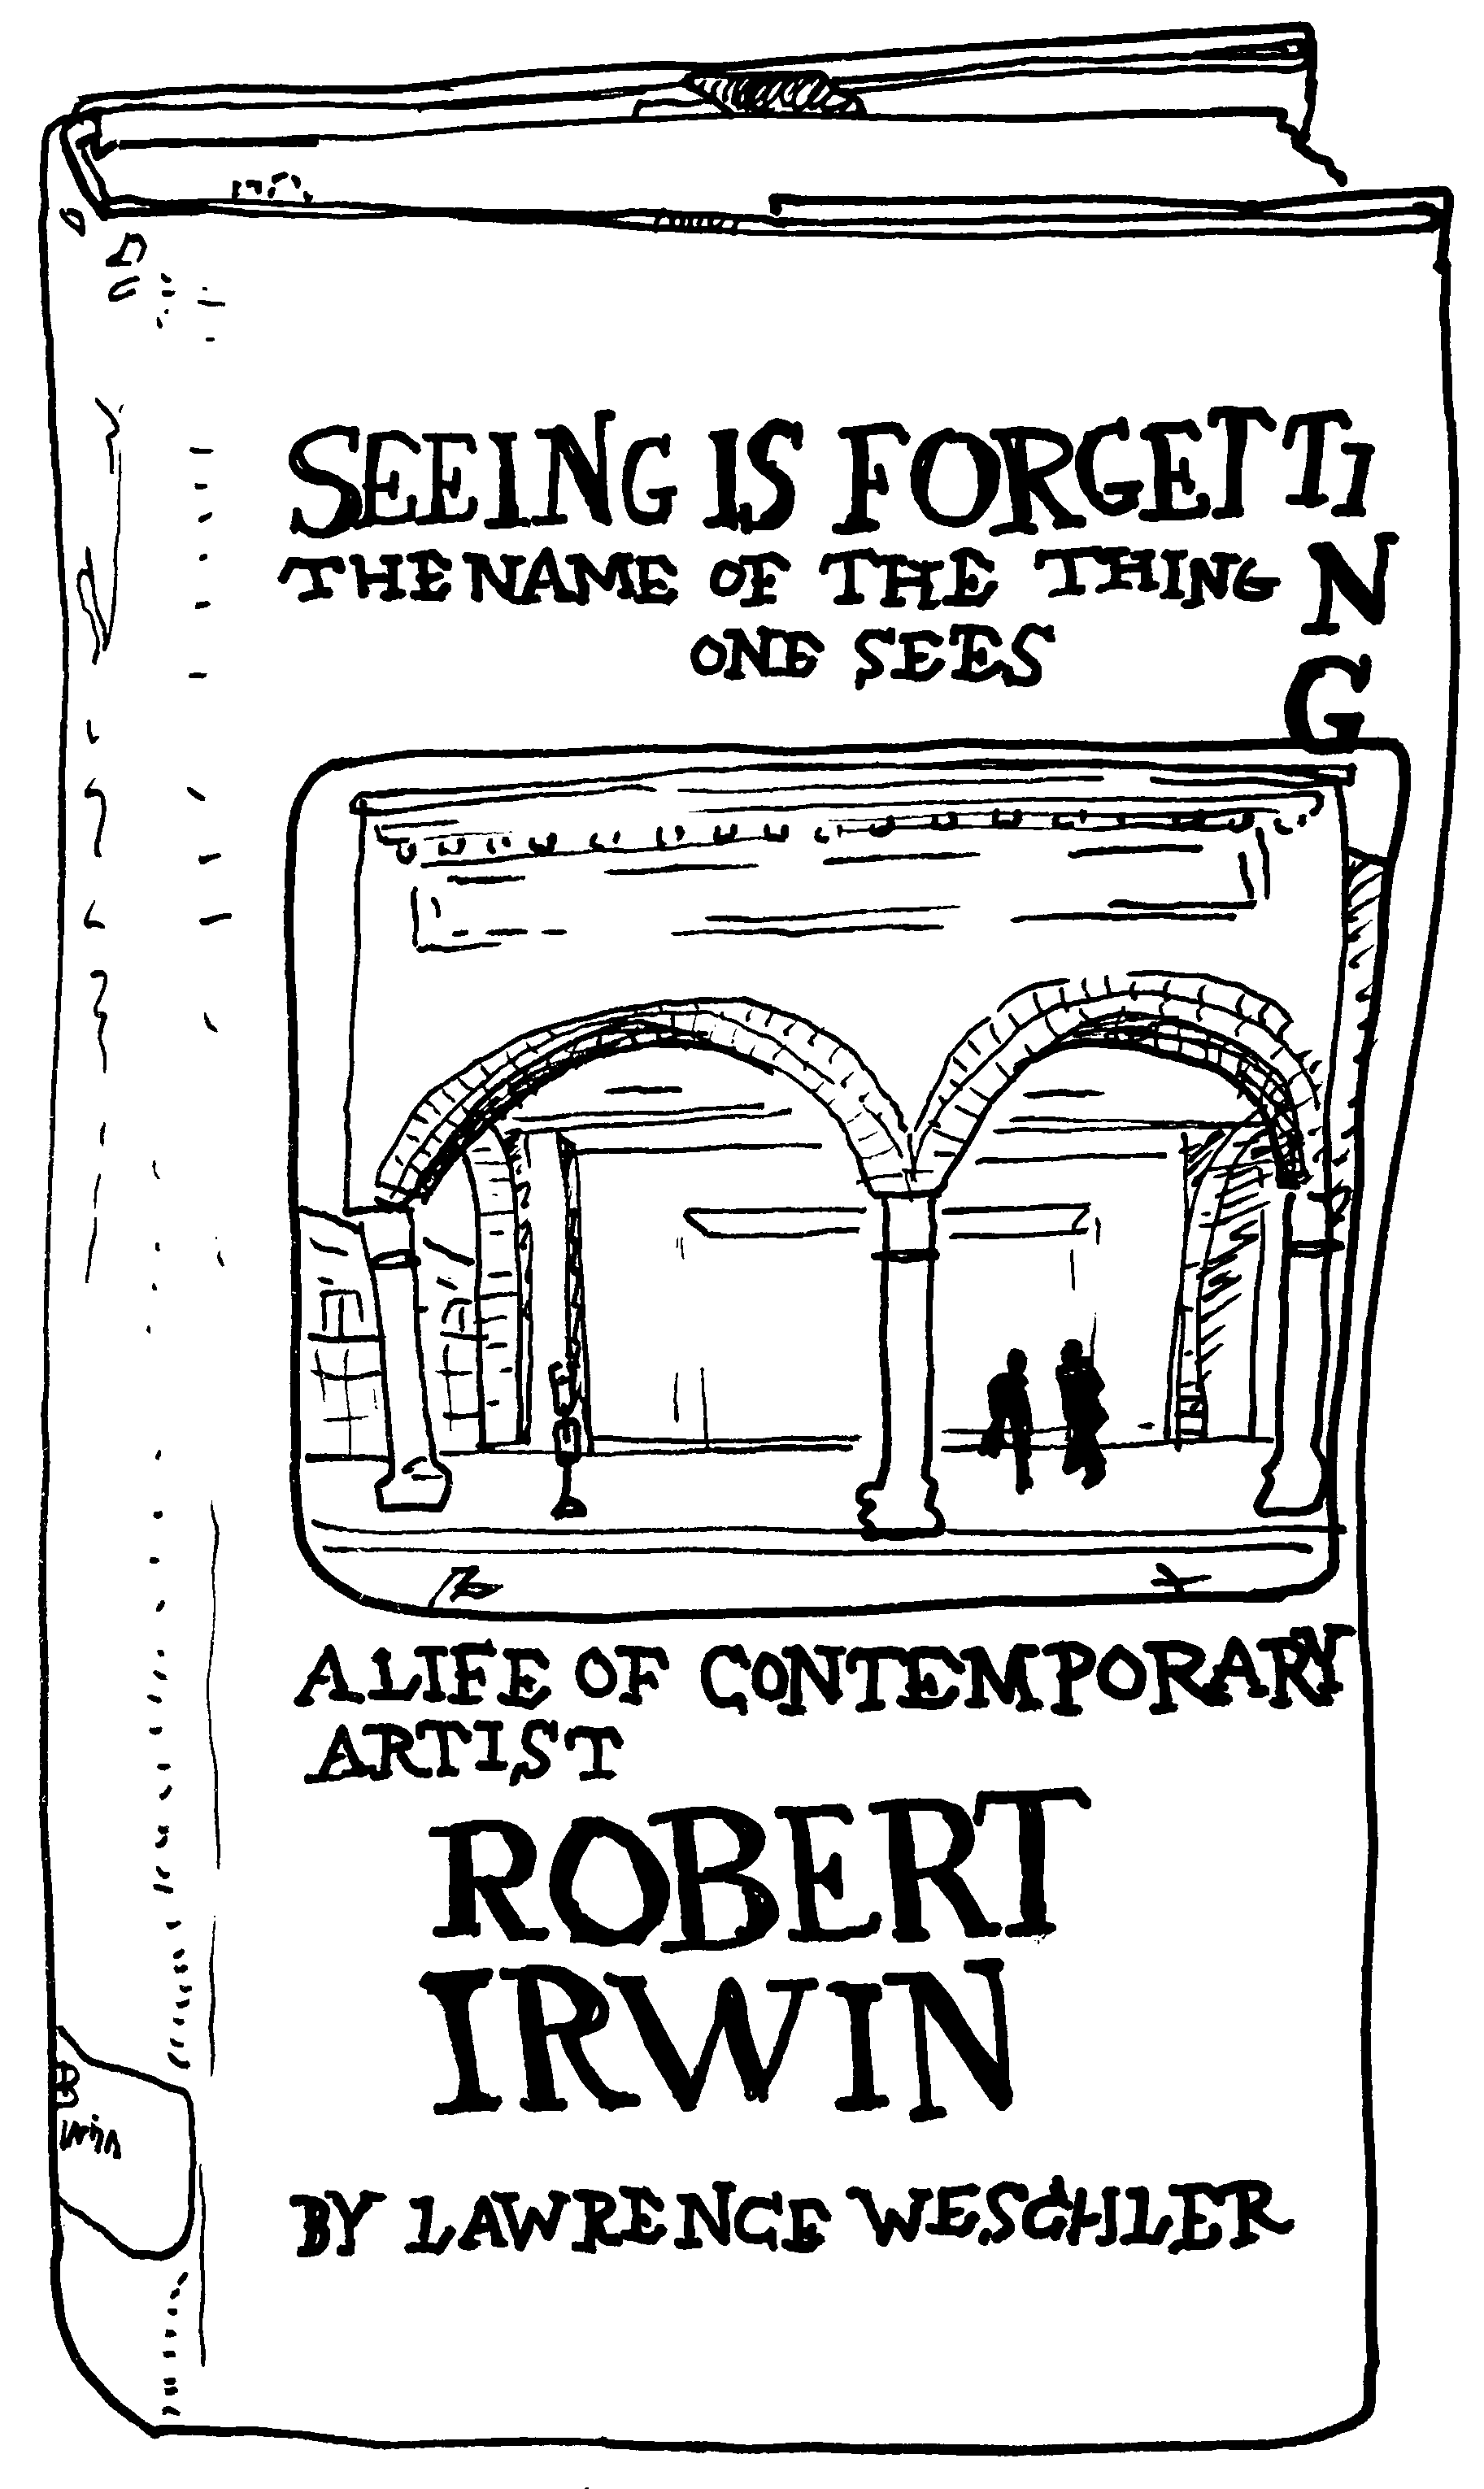 SEEING IS FORGETTING
THE NAME OF THE THING
ONE SEES
A LIFE OF CONTEMPORARY
ARTIST
ROBERT
IRWIN
BY LAWRENCE WESCHLER
R
Irwin